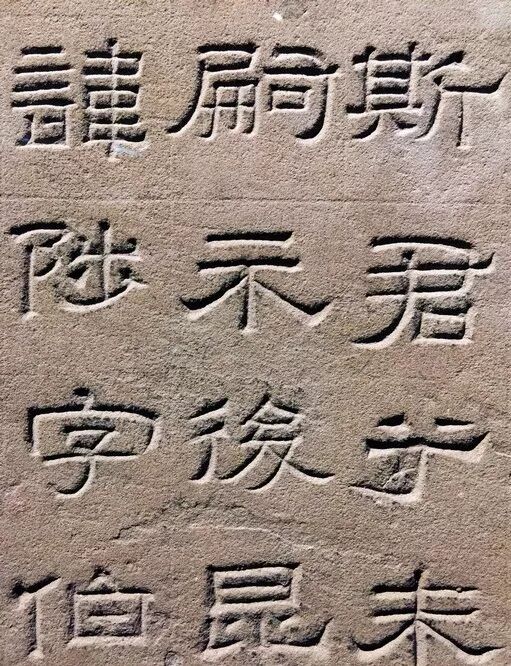 斯君未
嗣示後昆
諱陟字伯